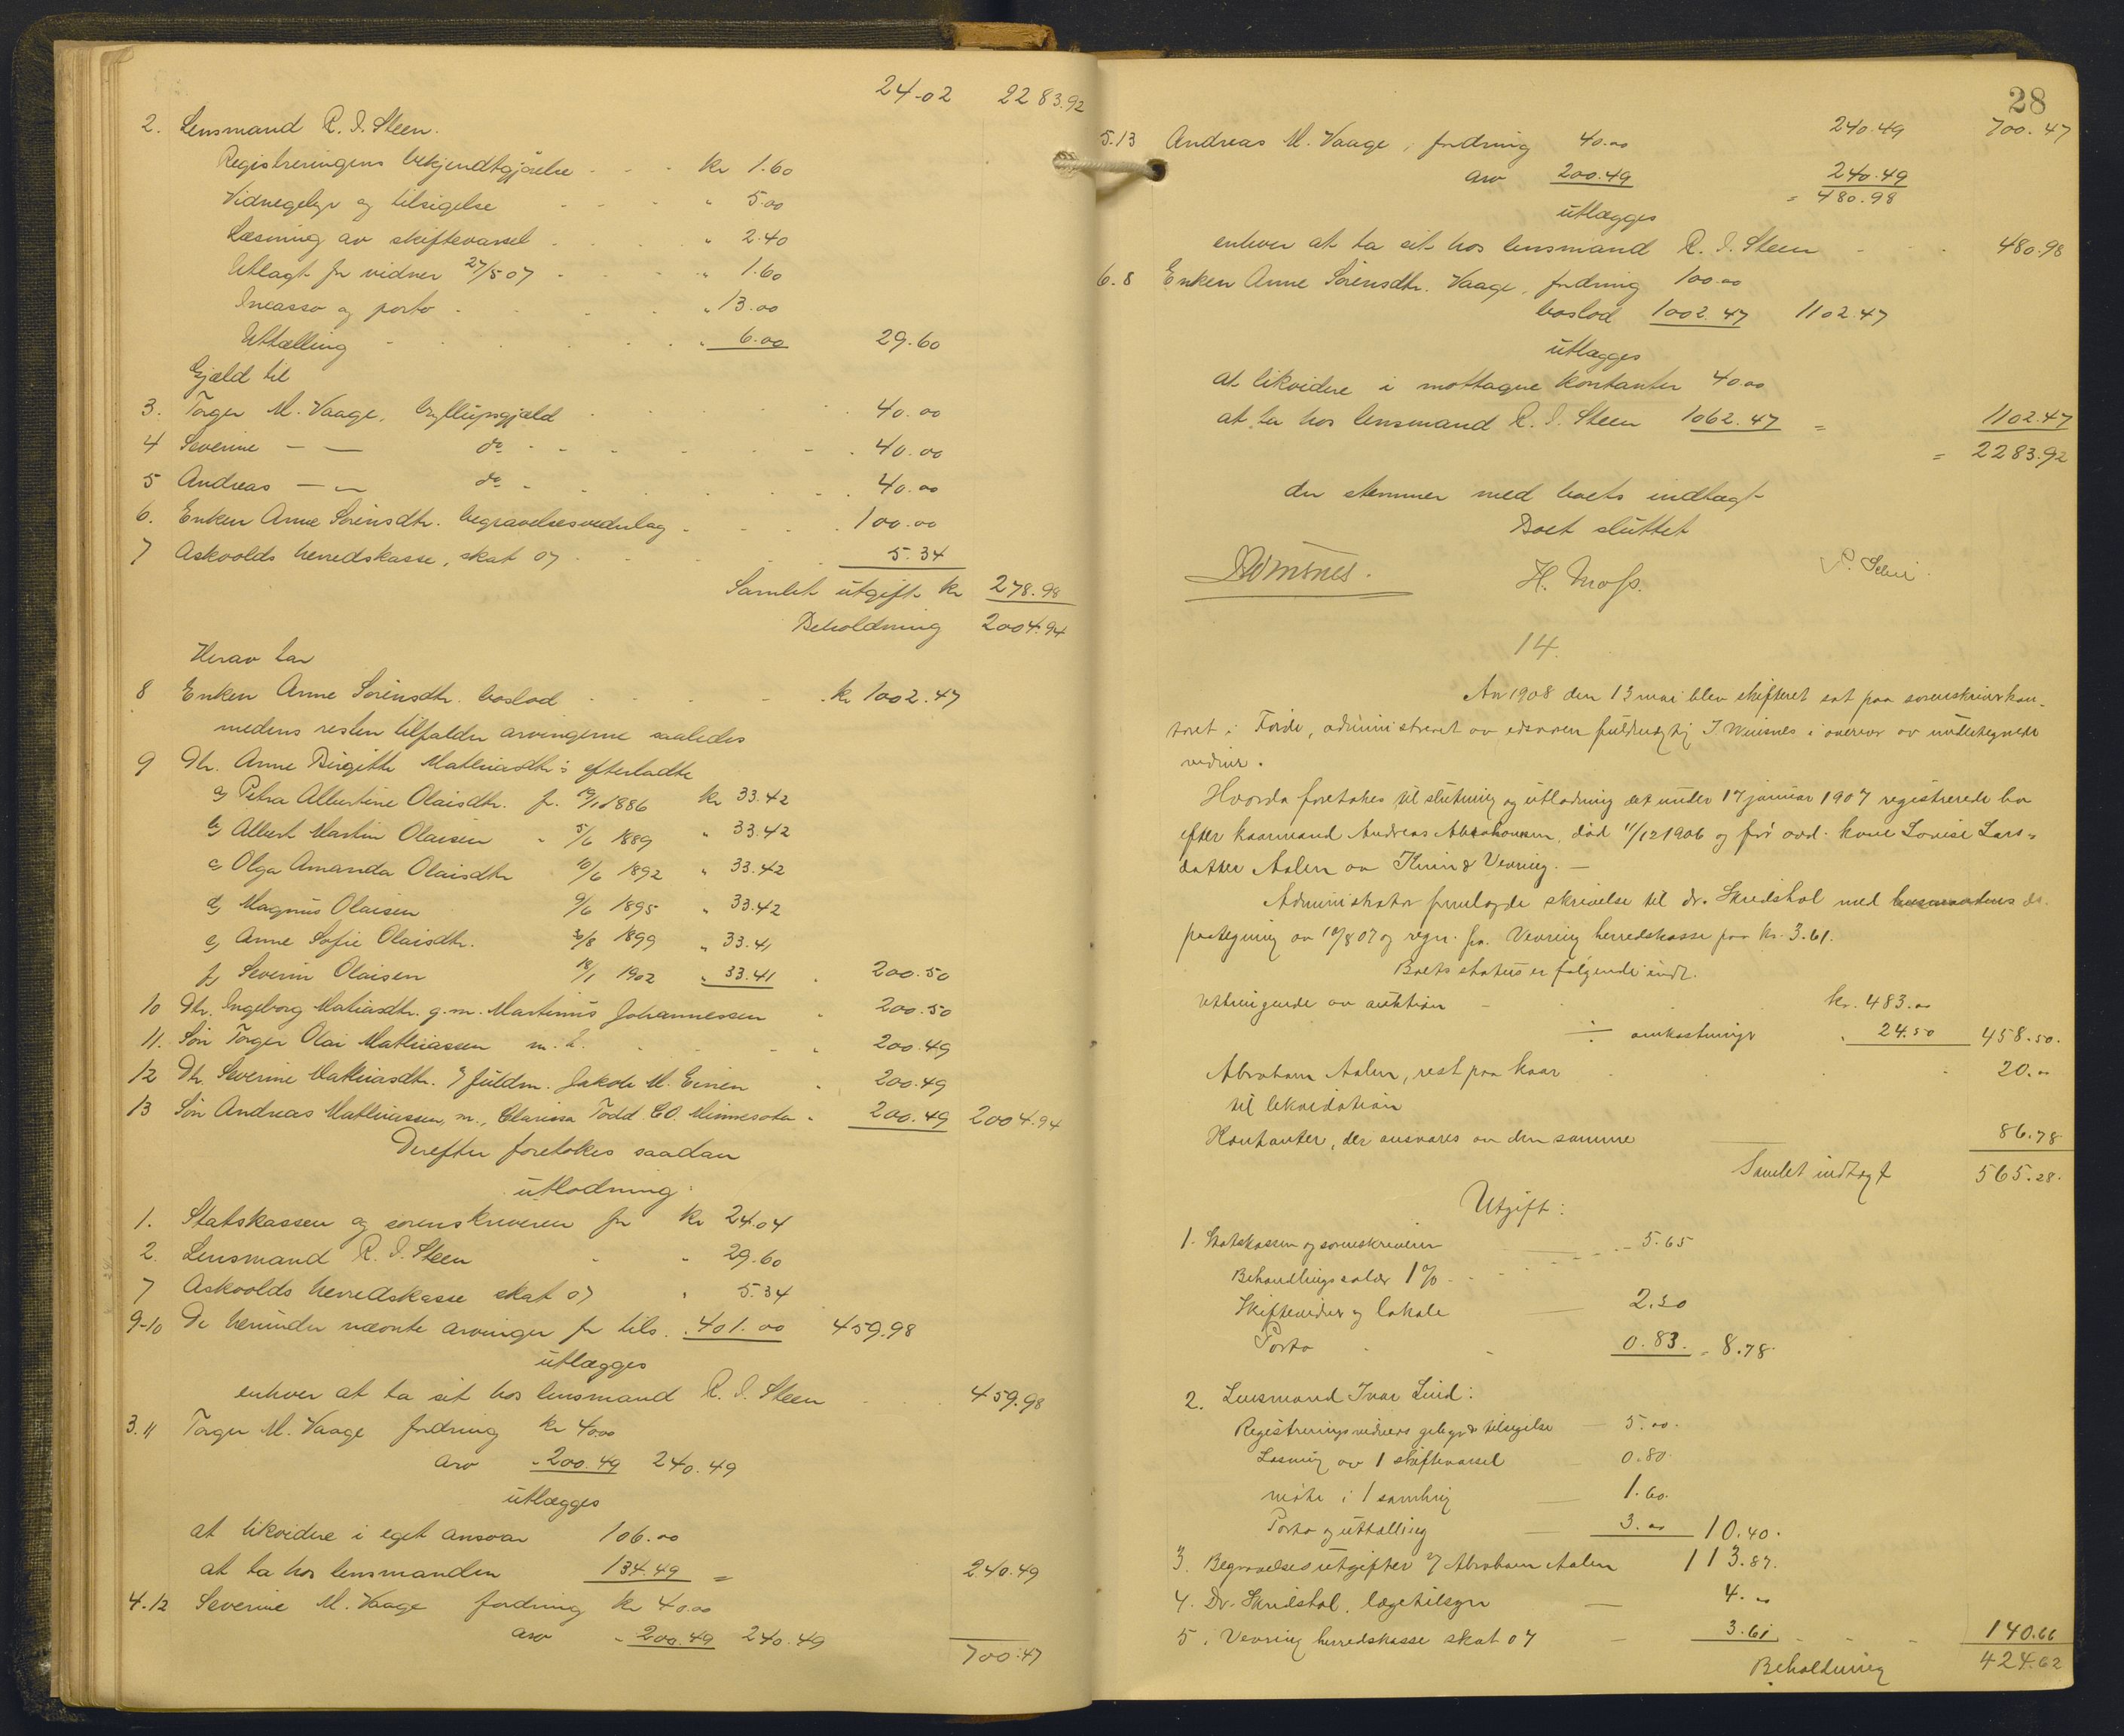 24.02 2283.92
2. Lensmand R. I. Steen.
Registreringens bekjendtgjörelse - - - kr 1.60
Vidnegebyr og tilsigelse - - - " 5.00
Læsning av skiftevarsel - - - " 2.40
Utlagt for vidner 27/5 07 - - - " 1.60
Incasso og porto - - - " 13.00
Uttælling - - - " 6.00 29.60
Gjæld til
3. Torger M. Vaage, bryllupsgjæld - - - 40.00
4 Severine — — do - - - 40.00
5 Andreas — — do - - - 40.00
6. Enken Anne Sörensdtr. begravelsesvederlag - - - 100.00
7 Askvolds herredskasse, skat 07 - - - 5.34
Samlet utgift kr 278.98
Beholdning 2004.94
Herav tar
8 Enken Anne Sörensdtr. boslod - - - kr 1002.47
medens resten tilfalder arvingerne saaledes
9 Dtr. Anne Birgitte Mathiasdtr's efterladte
a) Petra Albertine Olaisdtr. f. 19/11 1886 kr 33.42
b) Albert Martin Olaisen " 5/6 1889 " 33.42
c) Olga Amanda Olaisdtr 10/6 1892 " 33.42
d) Magnus Olaisen 9/6 1895 " 33.42
e) Anne Sofie Olaisdtr. 30/8 1899 " 33.41
f) Severin Olaisen 18/1 1902 " 33.41 " 200.50
10 Dtr. Ingeborg Mathiasdtr. g.m. Martinus Johannessen " 200.50
11. Sön Torger Olai Mathiassen m. - - - " 200.49
12 Dtr. Severine Mathiasdtr. fuldm. Jakob M. Eirien " 200.49
13 Sön Andreas Mathiassen, m., Clarissa Todd CO. Minnesota " 200.49 2004.94
Derefter foretokes saadan
utlodning:
1. Statskassen og sorenskriveren for kr 24.04
2. Lensmand R. I. Steen - " 29.60
7 Askvolds herredskasse skat 07 " 5.34
9-10 De herunder nævnte arvinger for tils. " 401.00 459.98
utlægges
enhver at ta sit hos lensmand R. I. Steen - - - 459.98
3.11 Torger M. Vaage fordring kr 40.00
arv " 200.49 240.49
utlægges
at likvidere i eget ansvar 106.00
at ta hos lensmanden 134.49 = 240.49
4.12 Severine M. Vaage fordring kr 40.00
arv " 200.49 240.49
700.47
28
240.49 700.47
5.13 Andreas M. Vaage, fordring 40.00
arv 200.49 240.49
= 480.98
utlægges
enhver at ta sit hos lensmand R. I. Steen - - - 480.98
6.8 Enken Anne Sörensdtr. Vaage, fordring 100.00
boslod 1002.47 1102.47
utlægges
at likvidere i mottagne kontanter 40.00
at ta hos lensmand R. I. Steen 1062.47 = 1102.47
= 2283.92
der stemmer med boets indtægt
Boet sluttet
H. Moss.
14.
An 1908 den 13 mai blev skifteret sat paa sorenskriverkon-
toret i Förde, administreret av edsvoren fuldmægtig i overvær av undertegnede
vidner.
Hvorda foretokes til slutning og utlodning det under 17 januar 1907 registrerede bo
efter kaarmand Andreas Abrahamsen, död 11/12 1906 og för avd. kone Lovise Lars-
datter Aalen av Kinn & Vevring. —
Administrator fremlagde skrivelse til dr. Skredstol med ds.
paategning av 10/8 07 og regn. fra Vevring herredskasse paa kr. 3.61.
Boets status er følgende indt.
Uttningende av auktion - - kr. 483.00
÷ omkostninger " 24.50 458.50.
Abraham Aalen, rest paa kaar - - - 20.00
til likvidation
Kontanter, der ansvares av den samme — 86.78
Samlet indtægt 565.28.
Utgift:
1. Statskassen og sorenskriveren
Behandlingssalær 1% - - - 5.65
Skiftevidner og lokale — 2.30
Porto - 0.83. = 8.78
2. Lensmand Ivar Lind:
Registreringsvidners gebyr & tilsigelse — 5.00.
Læsning av 1 skiftevarsel — 0.80
möte i 1 samling — 1.60.
Porto og uttælling — 3.00 10.40.
3. Begravelsesutgifter Abraham Aalen 113.87.
4. Dr. Skredstol, lægetilsyn — 4.00
5. Vevring herredskasse skat 07 — 3.61 - - - 140.66
Beholdning 424.62